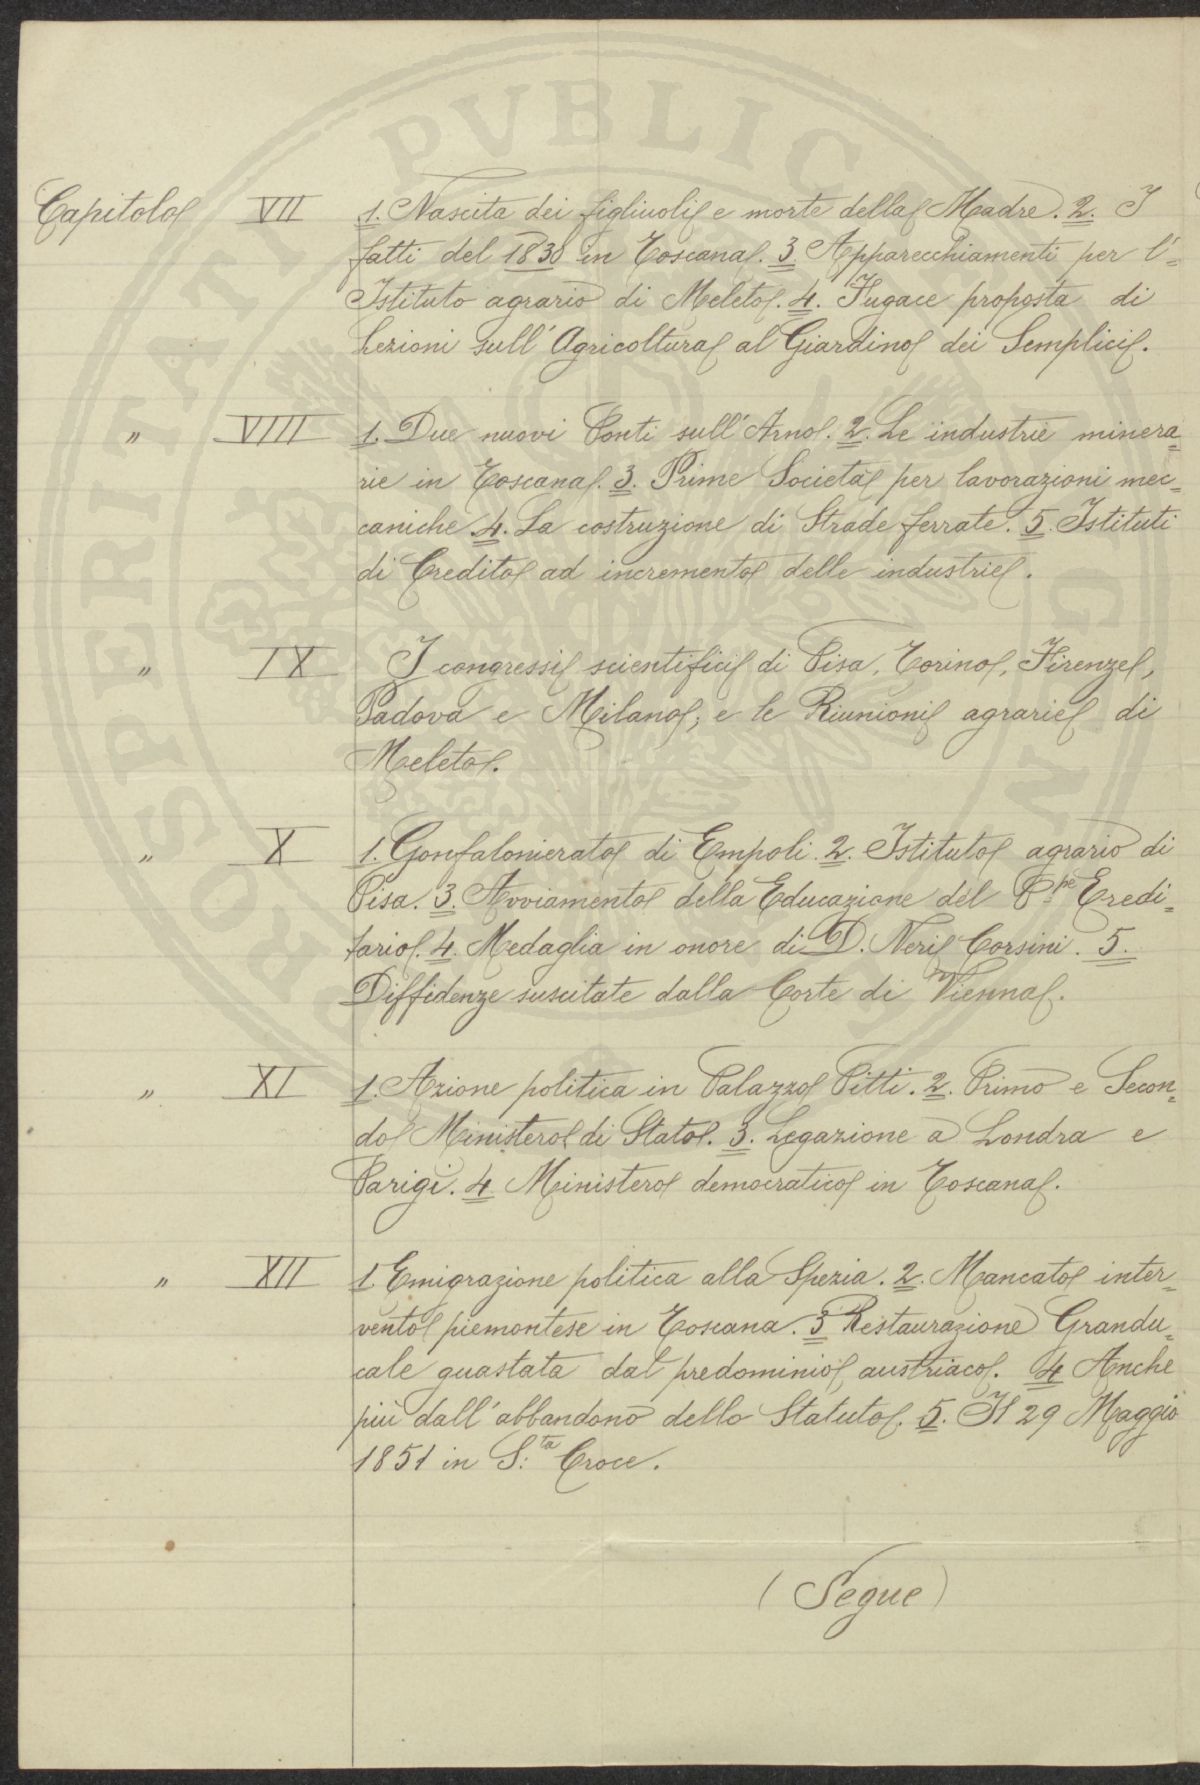 Capitolo VII 1. Nascita dei figliuoli e morte della Madre. 2. I
fatti del 1830 in Toscana. 3. Apparecchiamenti per l'=
Istituto agrario di Meleto. 4. Fugace proposta di
Lezioni sull'Agricoltura al Giardino dei Semplici.
" VIII 1. Due nuovi Ponti sull'Arno. 2. Le industrie minera=
rie in Toscana. 3. Prime Società per lavorazioni mec=
caniche 4. La costruzione di Strade ferrate. 5. Istituti
di Credito ad incremento delle industrie.
" IX I congressi scientifici di Pisa, Torino, Firenze,
Padova e Milano; e le Riunioni agrarie di
Meleto.
" X 1. Gonfalonierato di Empoli. 2. Istituto agrario di
Pisa. 3. Avviamento della Educazione del P.pe Eredi=
tario. 4. Medaglia in onore di D. Neri Corsini. 5.
Diffidenze suscitate dalla Corte di Vienna.
" XI 1. Azione politica in Palazzo Pitti. 2. Primo e Secon=
do Ministero di Stato. 3. Legazione a Londra e
Parigi. 4. Ministero democratico in Toscana.
" XII 1. Emigrazione politica alla Spezia. 2. Mancato inter=
vento piemontese in Toscana. 3 Restaurazione Grandu=
cale guastata dal predominio austriaco. 4 Anche
più dall'abbandono dello Statuto. 5. Il 29 Maggio
1851 in S:ta Croce.
(Segue)